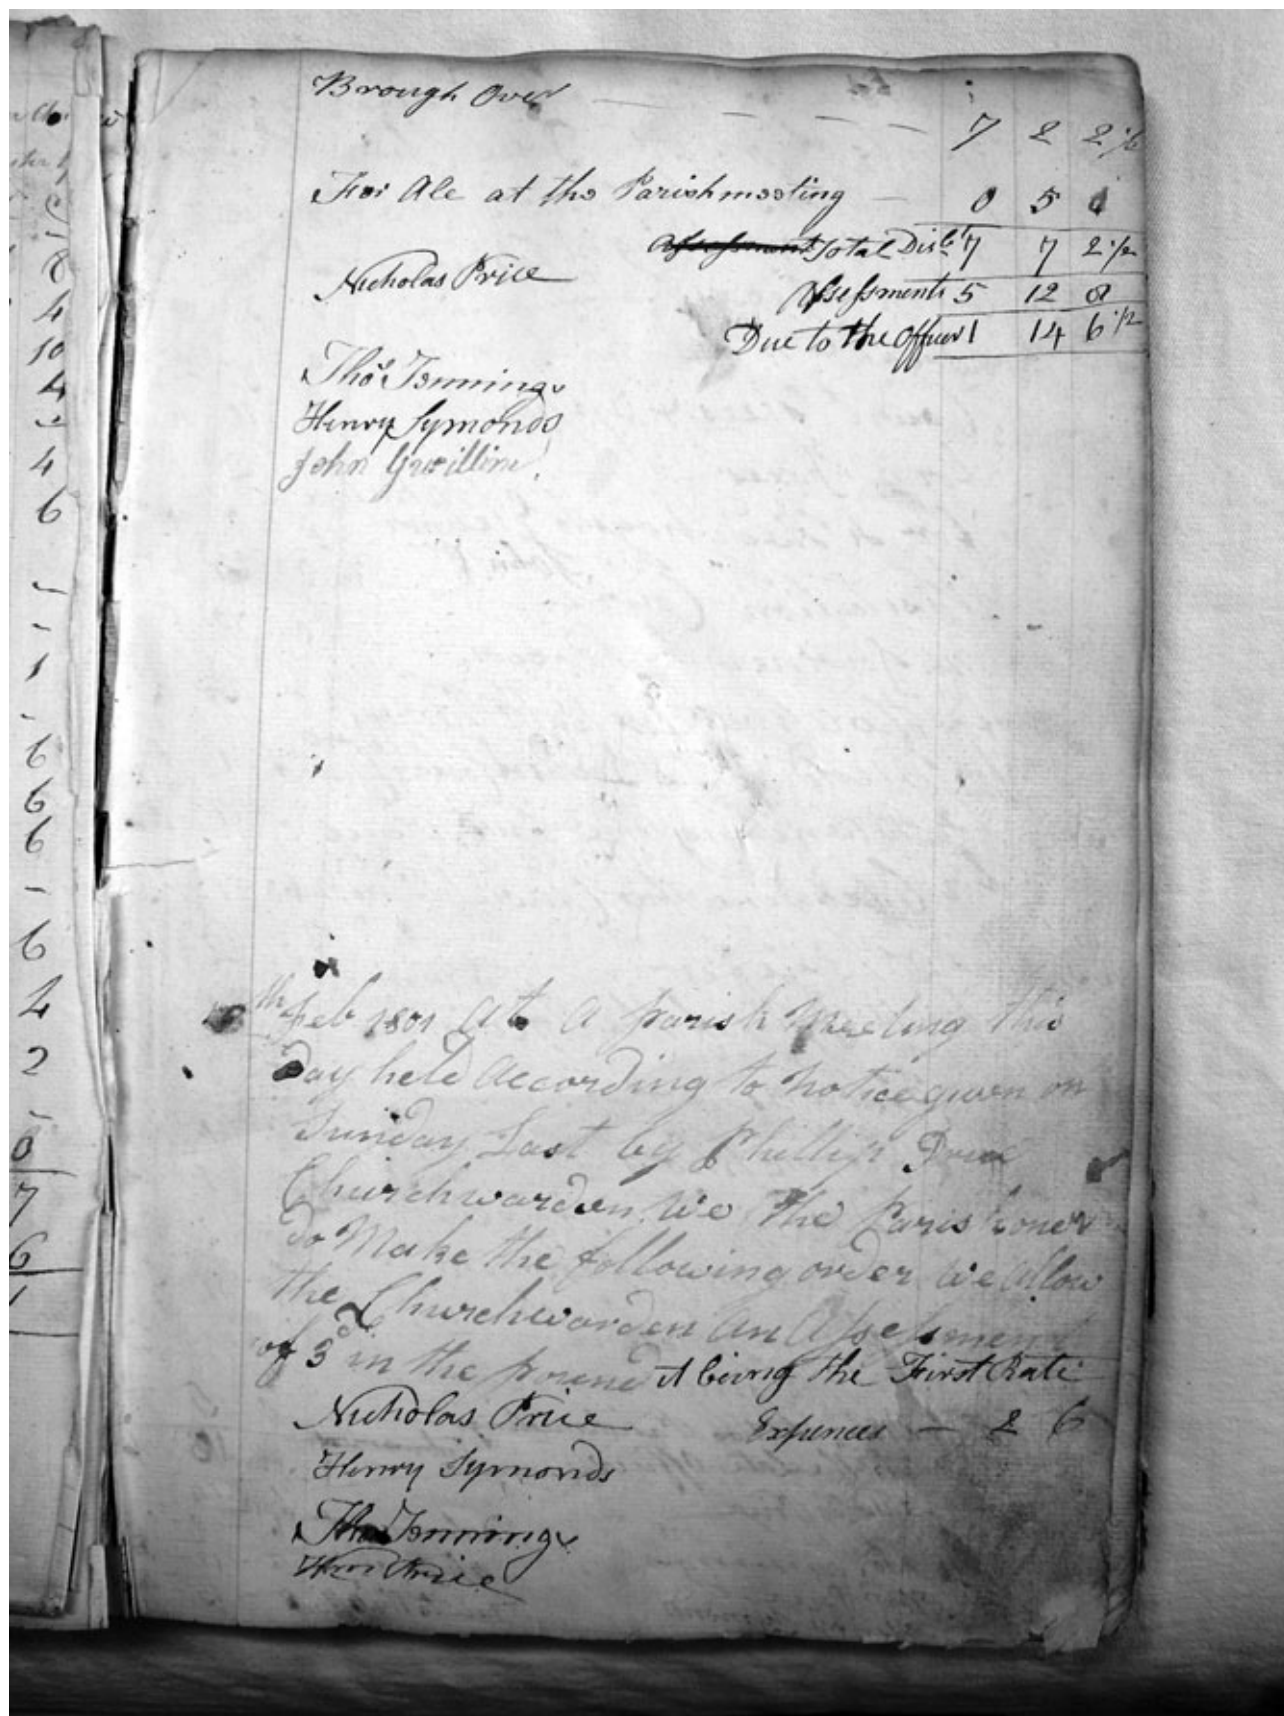 Brough Over 7 2 2 1/2
For Ale at the Parish meeting 0 5 0
Assessment Total Disbts 7 7 2 1/2
Nicholas Price
Assessments 5 12 8
Due to the Officer 1 14 6 1/2
Thos Jennings
Henry Symonds
John Gwillim
th Feb 1801 At a parish Meeting this
Day held According to Notice given on
Sunday Last by Phillip Price
Churchwarden We the Parishoners
do Make the following order we allow
the Churchwarden An Assessment
of 3d in the pound it being the First Rate
Nicholas Price
Expences - 2 6
Henry Symonds
Thos Jennings
Wm Price
4
10
4
4
6
6
6
6
6
4
2
0
7
6
1